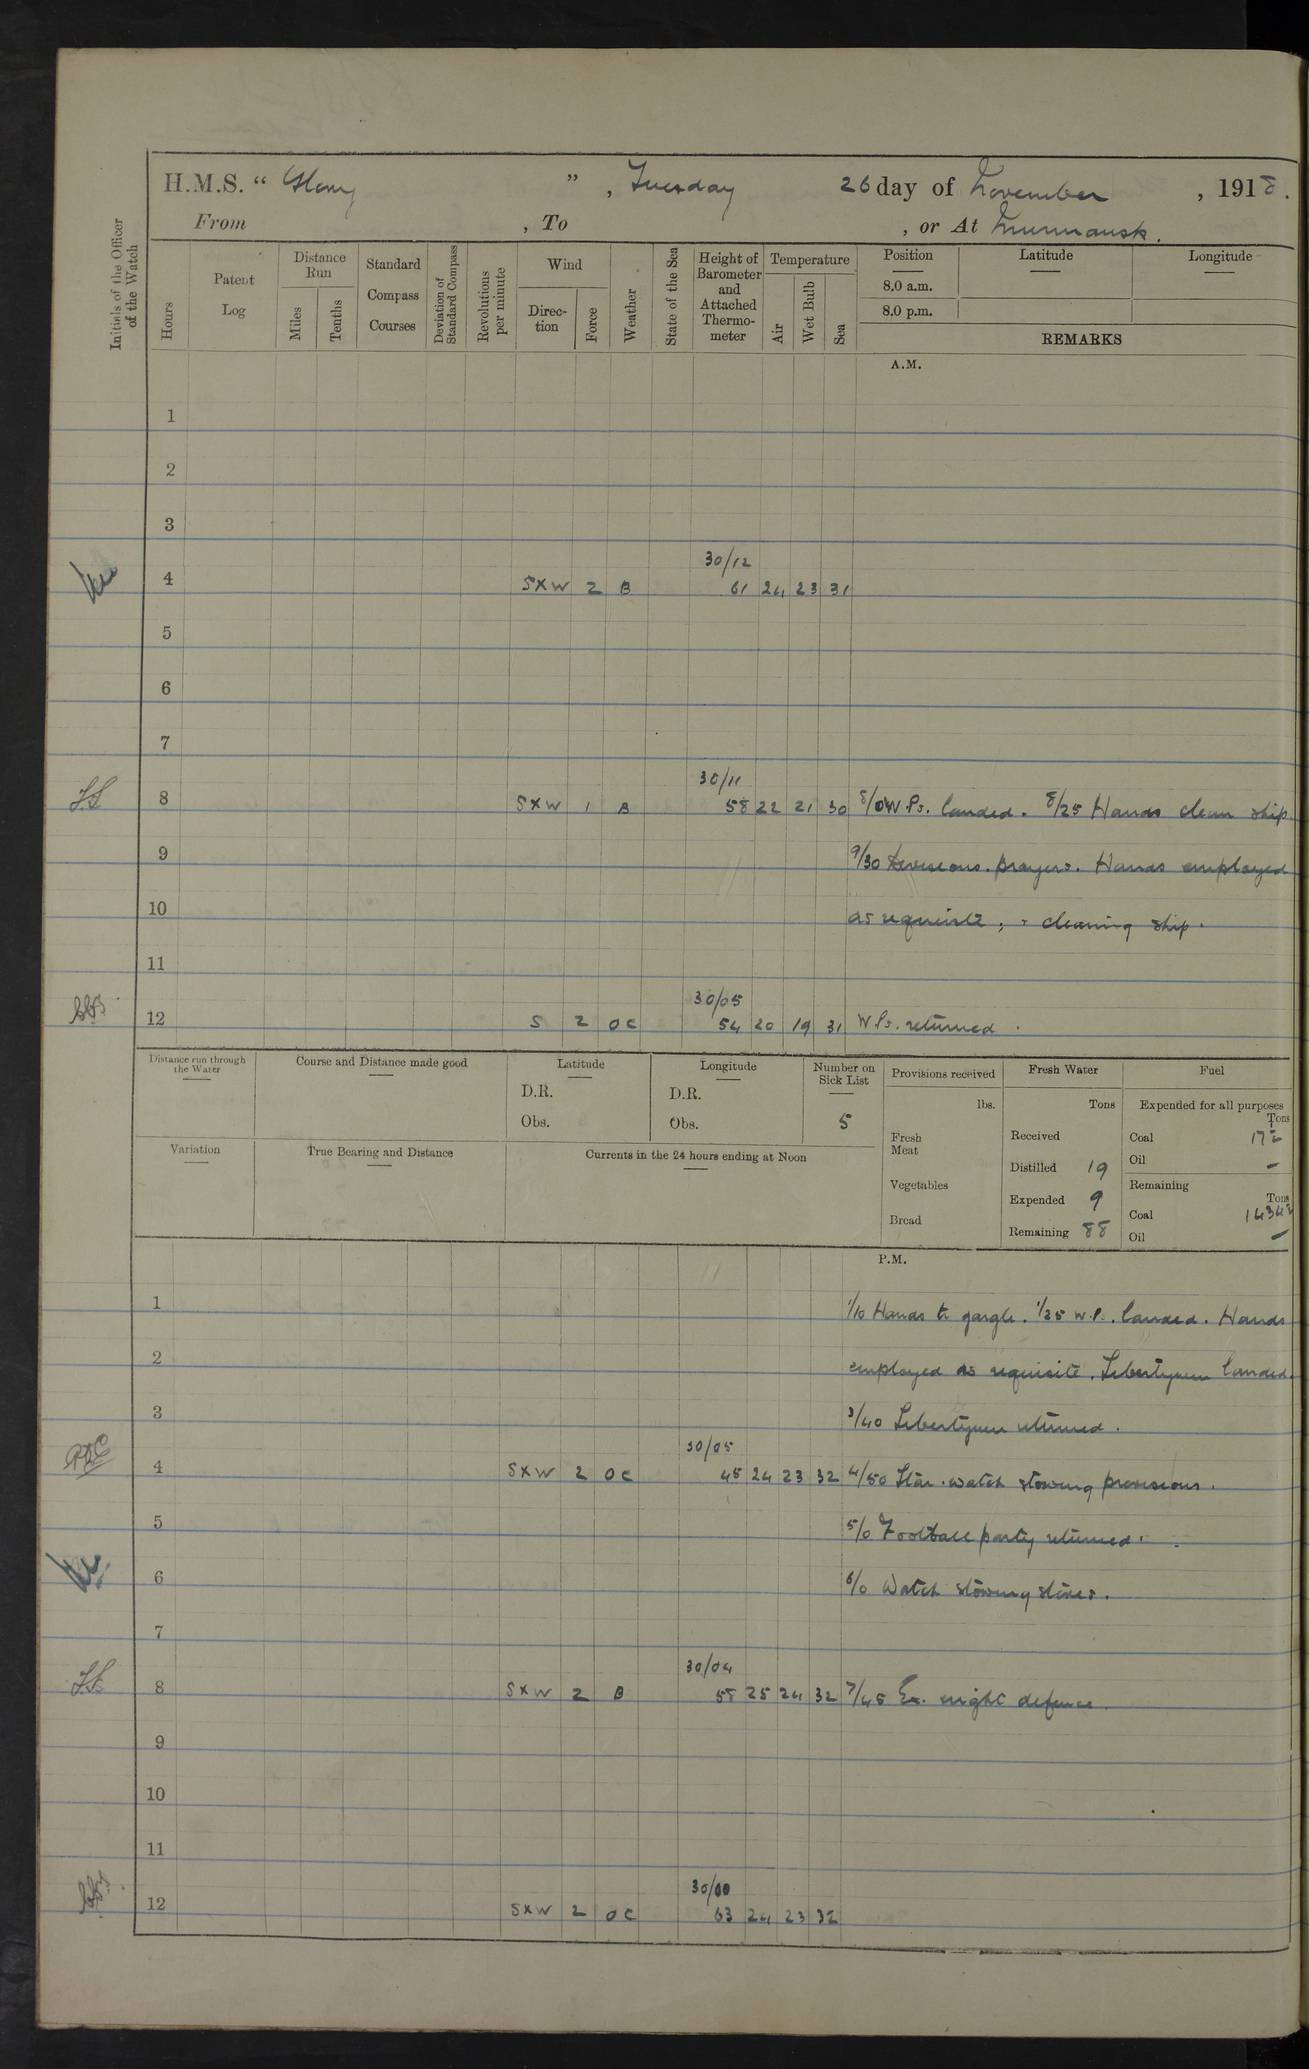 H.M.S. “ Glory ” , Tuesday 26 day of November , 1918.
From , To , or At Murmansk.
Initials of the Officer of the Watch
Hours
Patent Log
Distance Run
Miles
Tenths
Standard Compass Courses
Deviation of Standard Compass
Revolutions per minute
Wind
Direc-tion
Force
Weather
State of the Sea
Height of Barometer and Attached Thermo-meter
Temperature
Air
Wet Bulb
Sea
Position
8.0 a.m.
8.0 p.m.
Latitude
Longitude
REMARKS
A.M.
1
2
3
30/12
4 SXW 2 B 61 24 23 31
5
6
7
30/11
8 SXW 1 B 58 22 21 30 8/0 W.Ps. landed. 8/25 Hands clean ship.
9 9/30 Divisions. prayers. Hands employed
10 as requisite, + cleaning ship.
11
30/05
12 S 2 OC 54 20 19 31 W Ps. returned.
Distance run through the Water
Course and Distance made good
Latitude
D.R.
Obs.
Longitude
D.R.
Obs.
Number on Sick List
5
Provisions received
lbs.
Fresh Meat
Vegetables
Bread
Fresh Water
Tons
Received
Distilled 19
Expended 9
Remaining 88
Fuel
Expended for all purposes
Tons
Coal
Oil –
Remaining
Tons
Coal
Oil –
Variation
True Bearing and Distance
Currents in the 24 hours ending at Noon
P.M.
1 1/10 Hands to gargle. 1/25 W.P. landed. Hands
2 employed as requisite. Libertymen landed.
3 3/40 Libertymen returned.
30/05
4 SXW 2 OC 45 24 23 32 4/50 Star. watch stowing provisions.
5 5/0 Football party returned.
6 6/0 Watch stowing stores.
7
30/04
8 SXW 2 B 58 25 24 32 7/45 Ex. night defence.
9
10
11
30/00
12 SXW 2 OC 63 24 23 32